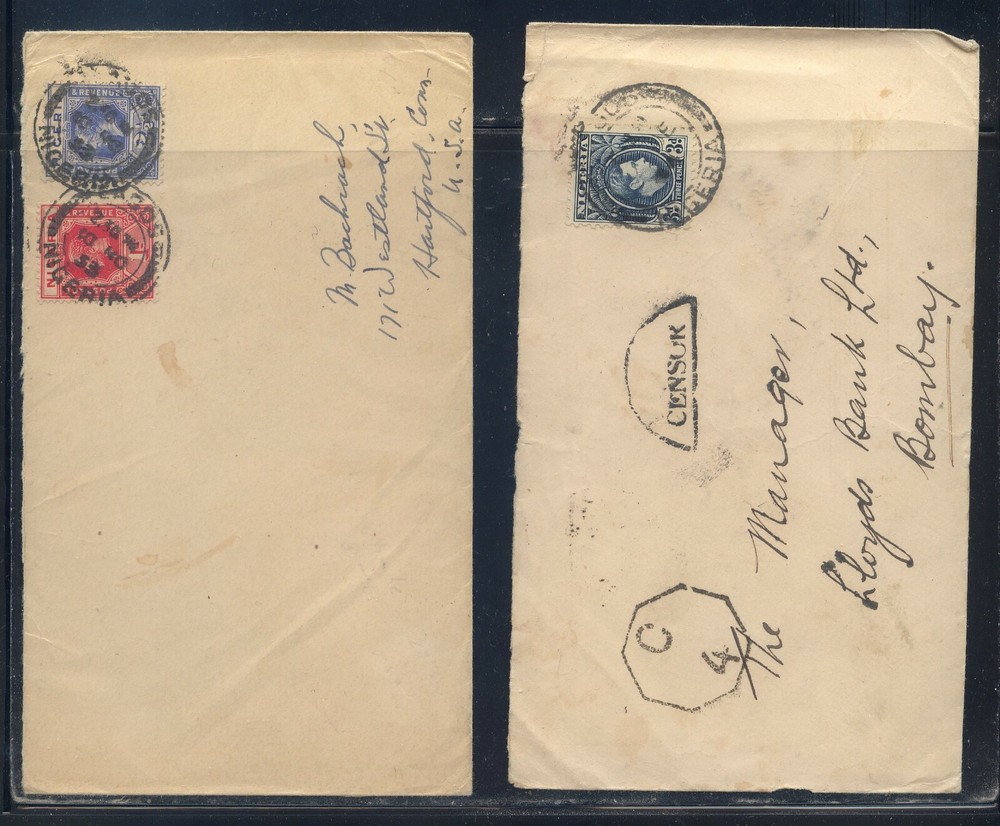 & REVENUE
NIGERIA
REVENUE
NIGERIA
M. Bachrach
171 Westland St.
Hartford, Conn
U.S.a.
NIGERIA
3d
3d
THREE PENCE
NIGERIA
CENSOR
C
4
The Manager,
Lloyds Bank Ltd.,
Bombay.